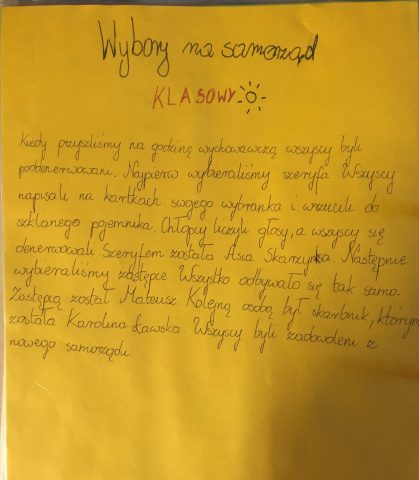 Wybory na samorząd
KLASOWY
Kiedy przyszliśmy na godzinę wychowawczą wszyscy byli
poddenerwowani. Najpierw wybieraliśmy szeryfa Wszyscy
napisali na kartkach swojego wybranka i wrzucili do
szklanego pojemnika. Chłopcy liczyli głosy, a wszyscy się
denerwowali. Szeryfem została Asia Skarżynka. Następnie
wybieraliśmy zastępce Wszystko odbywało się tak samo.
Zastępcą został Mateusz. Kolejną osobą był skarbnik, którym
została Karolina Ławska. Wszyscy byli zadowoleni z
nowego samorządu.